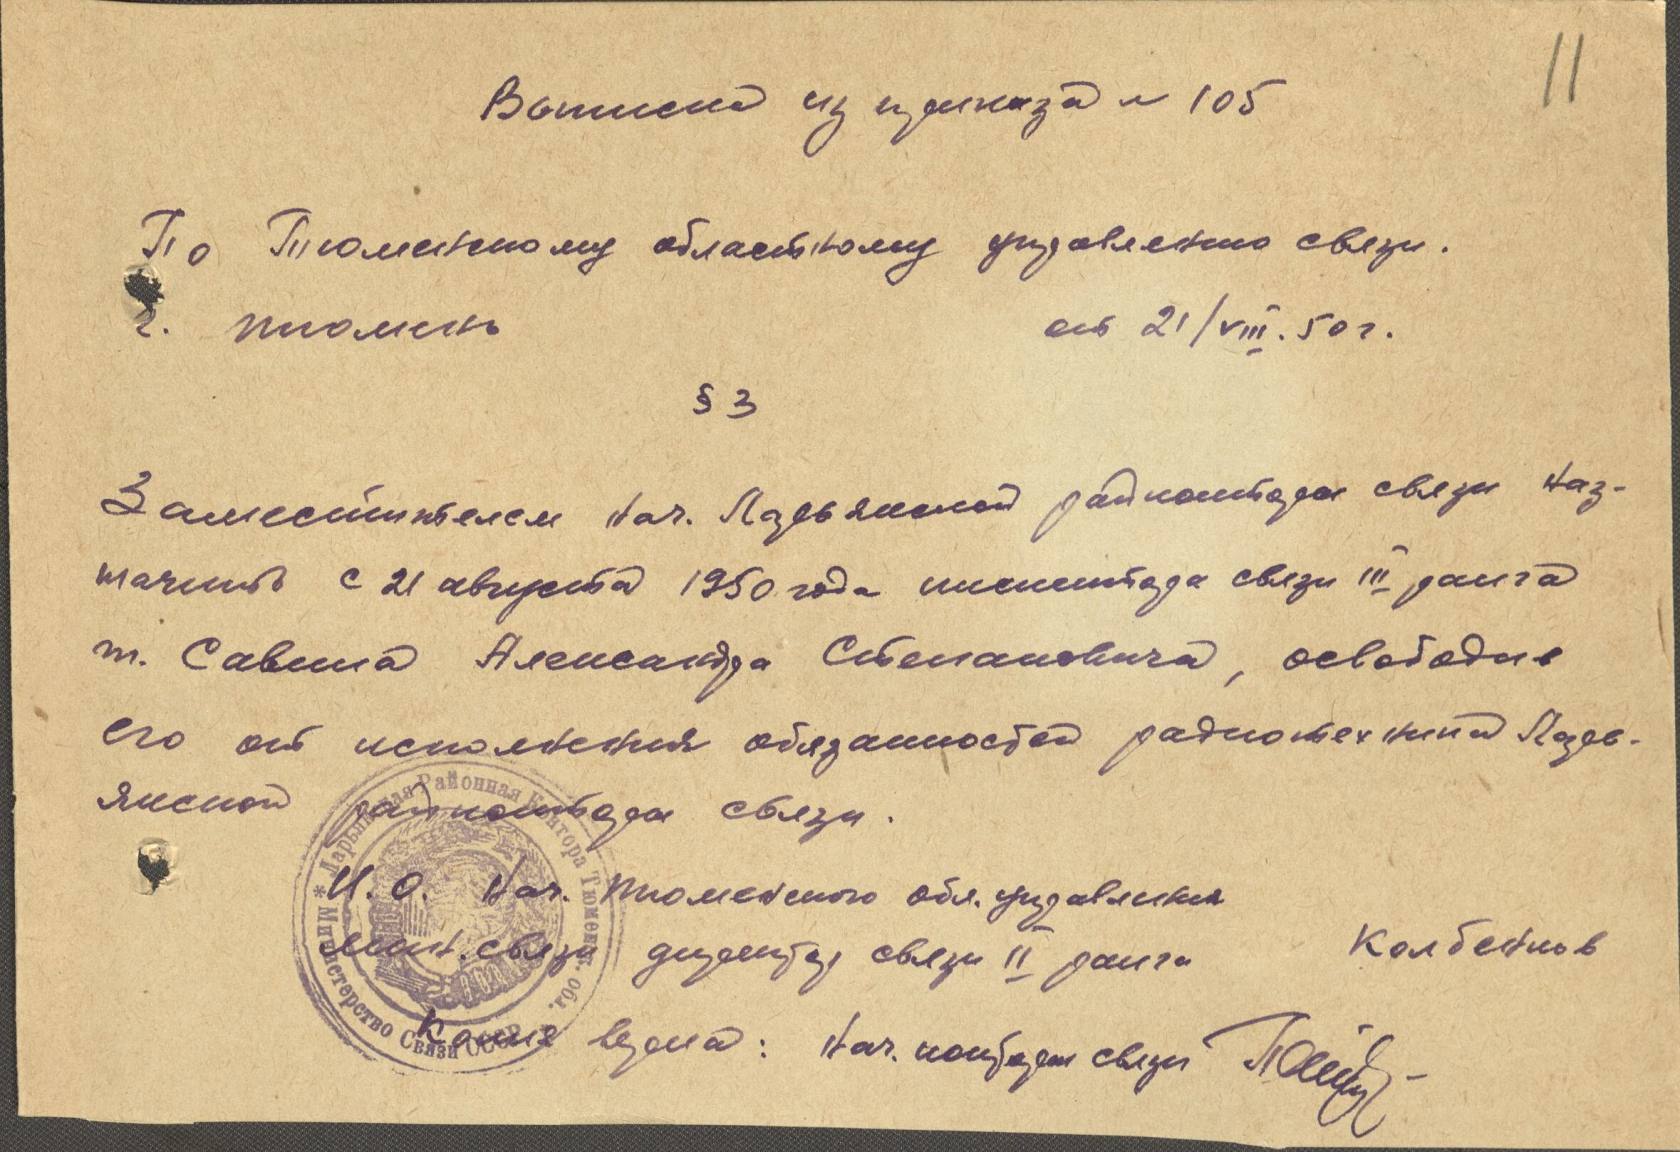 11
Выписка из приказа № 105
По Тюменскому областному управлению связи.
г. Тюмень от 21/VIII.50 г.
§ 3
Заместителем нач. Ларьякской райконторы связи наз-
начить с 21 августа 1950 года инспектора связи III ранга
т. Савина Александра Степановича, освободив
его от исполнения обязанностей радиотехника Ларь-
якской райконторы связи.
И.О. Нач. Тюменского обл. управления
мин. связи директор связи II ранга Колбенков
Копия верна: Нач. конторы связи
Министерство Связи СССР * Ларьякская Районная Контора Тюменск. обл.